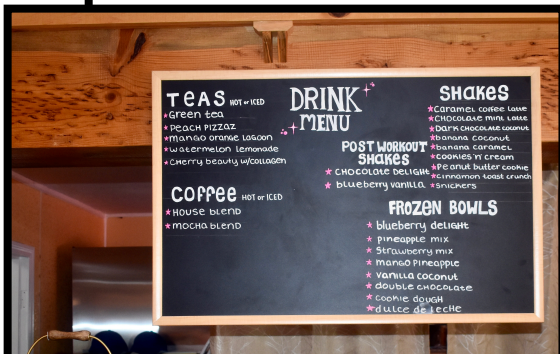 DRINK
MENU
TEAS HOT or ICED
Green tea
PEACH PIZZAZ
mango orange LAGOON
watermelon lemonade
CHerry beauty w/COLLAGEN
COFFEE HOT or ICED
HOUSE blenD
mocha blenD
POST WORKOUT
SHAKES
CHOCOLATE DELIGHT
blueberry vanilla
SHAKES
Caramel coffee Latte
CHOCOLATE mint Latte
Dark CHOCOLATE coconut
banana coconut
banana caramel
COOKIES 'n' cream
Peanut butter cookie
cinnamon toast crunch
snickers
FROZEN BOWLS
blueberry DELIGHT
pineapple mix
Strawberry mix
mango Pineapple
vanilla coconut
double CHOCOLATE
cookie DOUGH
dulce de LecHe